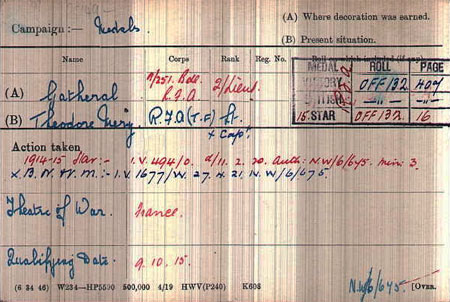 Campaign :— Medals (A) Where decoration was earned.
(B) Present situation.
Name Corps Rank Reg. No.
MEDAL ROLL PAGE
(A) Gatheral A/251. Bde. R.F.A. 2/Lieut. VICTORY OFF/132 409
BRITISH —"— —"—
(B) Theodore R.F.A (T.F) Lt. 15 STAR OFF/132. 16
x Capt
Action taken
1914-15 Star:- I.V. 494/0. d/11. 2. 20. Auth: N.W/6/645. min: 3.
x B. W. M:- I.V 1677/W. 27. 4. 21. N.W/6/675.
Theatre of War. France.
Qualifying Date. 9. 10. 15.
(6 34 46) W234—HP5590 500,000 4/19 HWV(P240) K608 N.W/6/645 [Over.